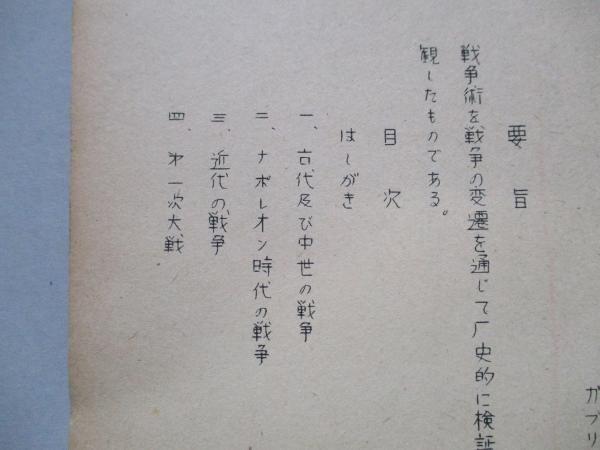 ガブリ
要旨
戦争術を戦争の変遷を通じて厂史的に検証
観したものである。
目次
はしがき
一、古代及び中世の戦争
二、ナポレオン時代の戦争
三、近代の戦争
四、第一次大戦